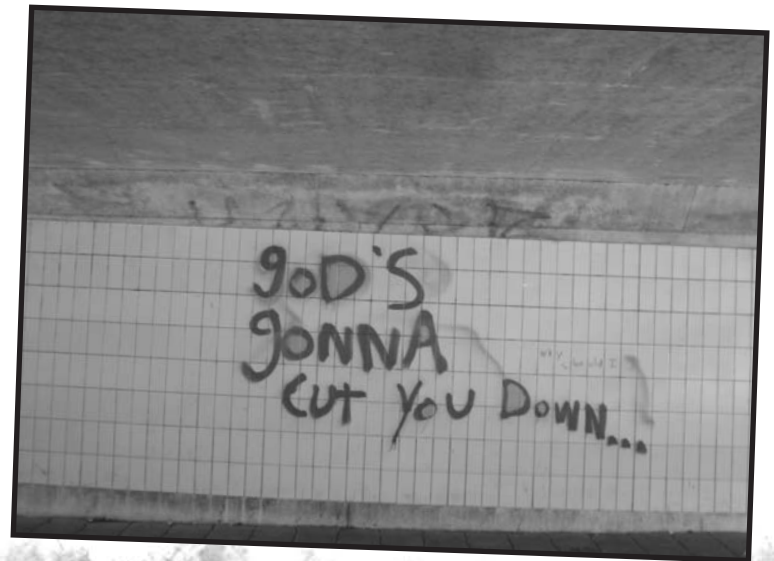 goD'S
gonnA
CUt YoU DoWN...